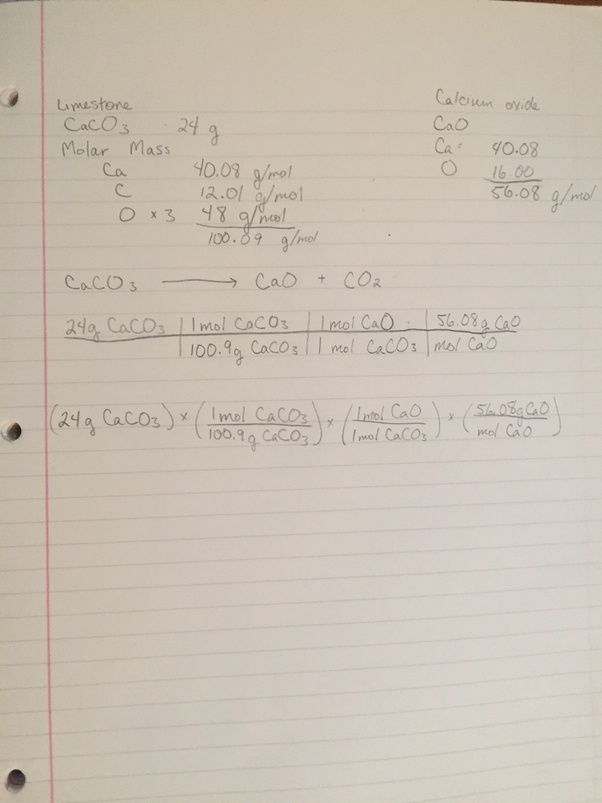 Limestone
CaCO3 · 24 g
Molar Mass
Ca 40.08 g/mol
C 12.01 g/mol
O × 3 48 g/mol
100.09 g/mol
Calcium oxide
CaO
Ca = 40.08
O 16.00
56.08 g/mol
CaCO3 ⟶ CaO + CO2
24g CaCO3 | 1mol CaCO3 | 1mol CaO | 56.08g CaO
100.9g CaCO3 | 1 mol CaCO3 | mol CaO
(24g CaCO3) × (1mol CaCO3 / 100.9g CaCO3) × (1mol CaO / 1mol CaCO3) × (56.08g CaO / mol CaO)